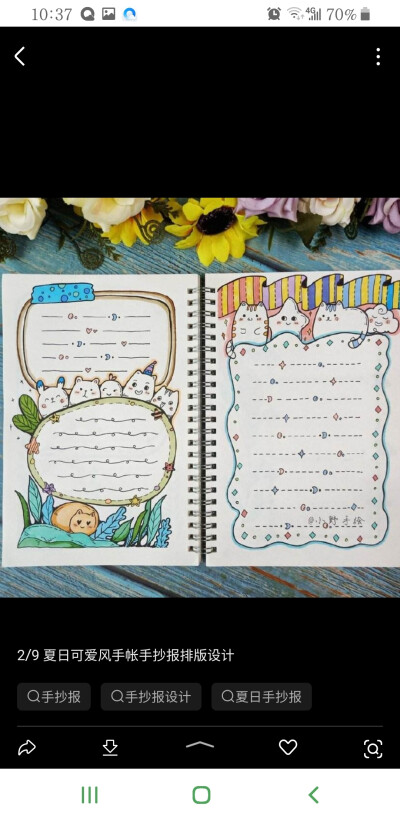 10:37
4G 70%
@小野手绘
2/9 夏日可爱风手帐手抄报排版设计
手抄报
手抄报设计
夏日手抄报